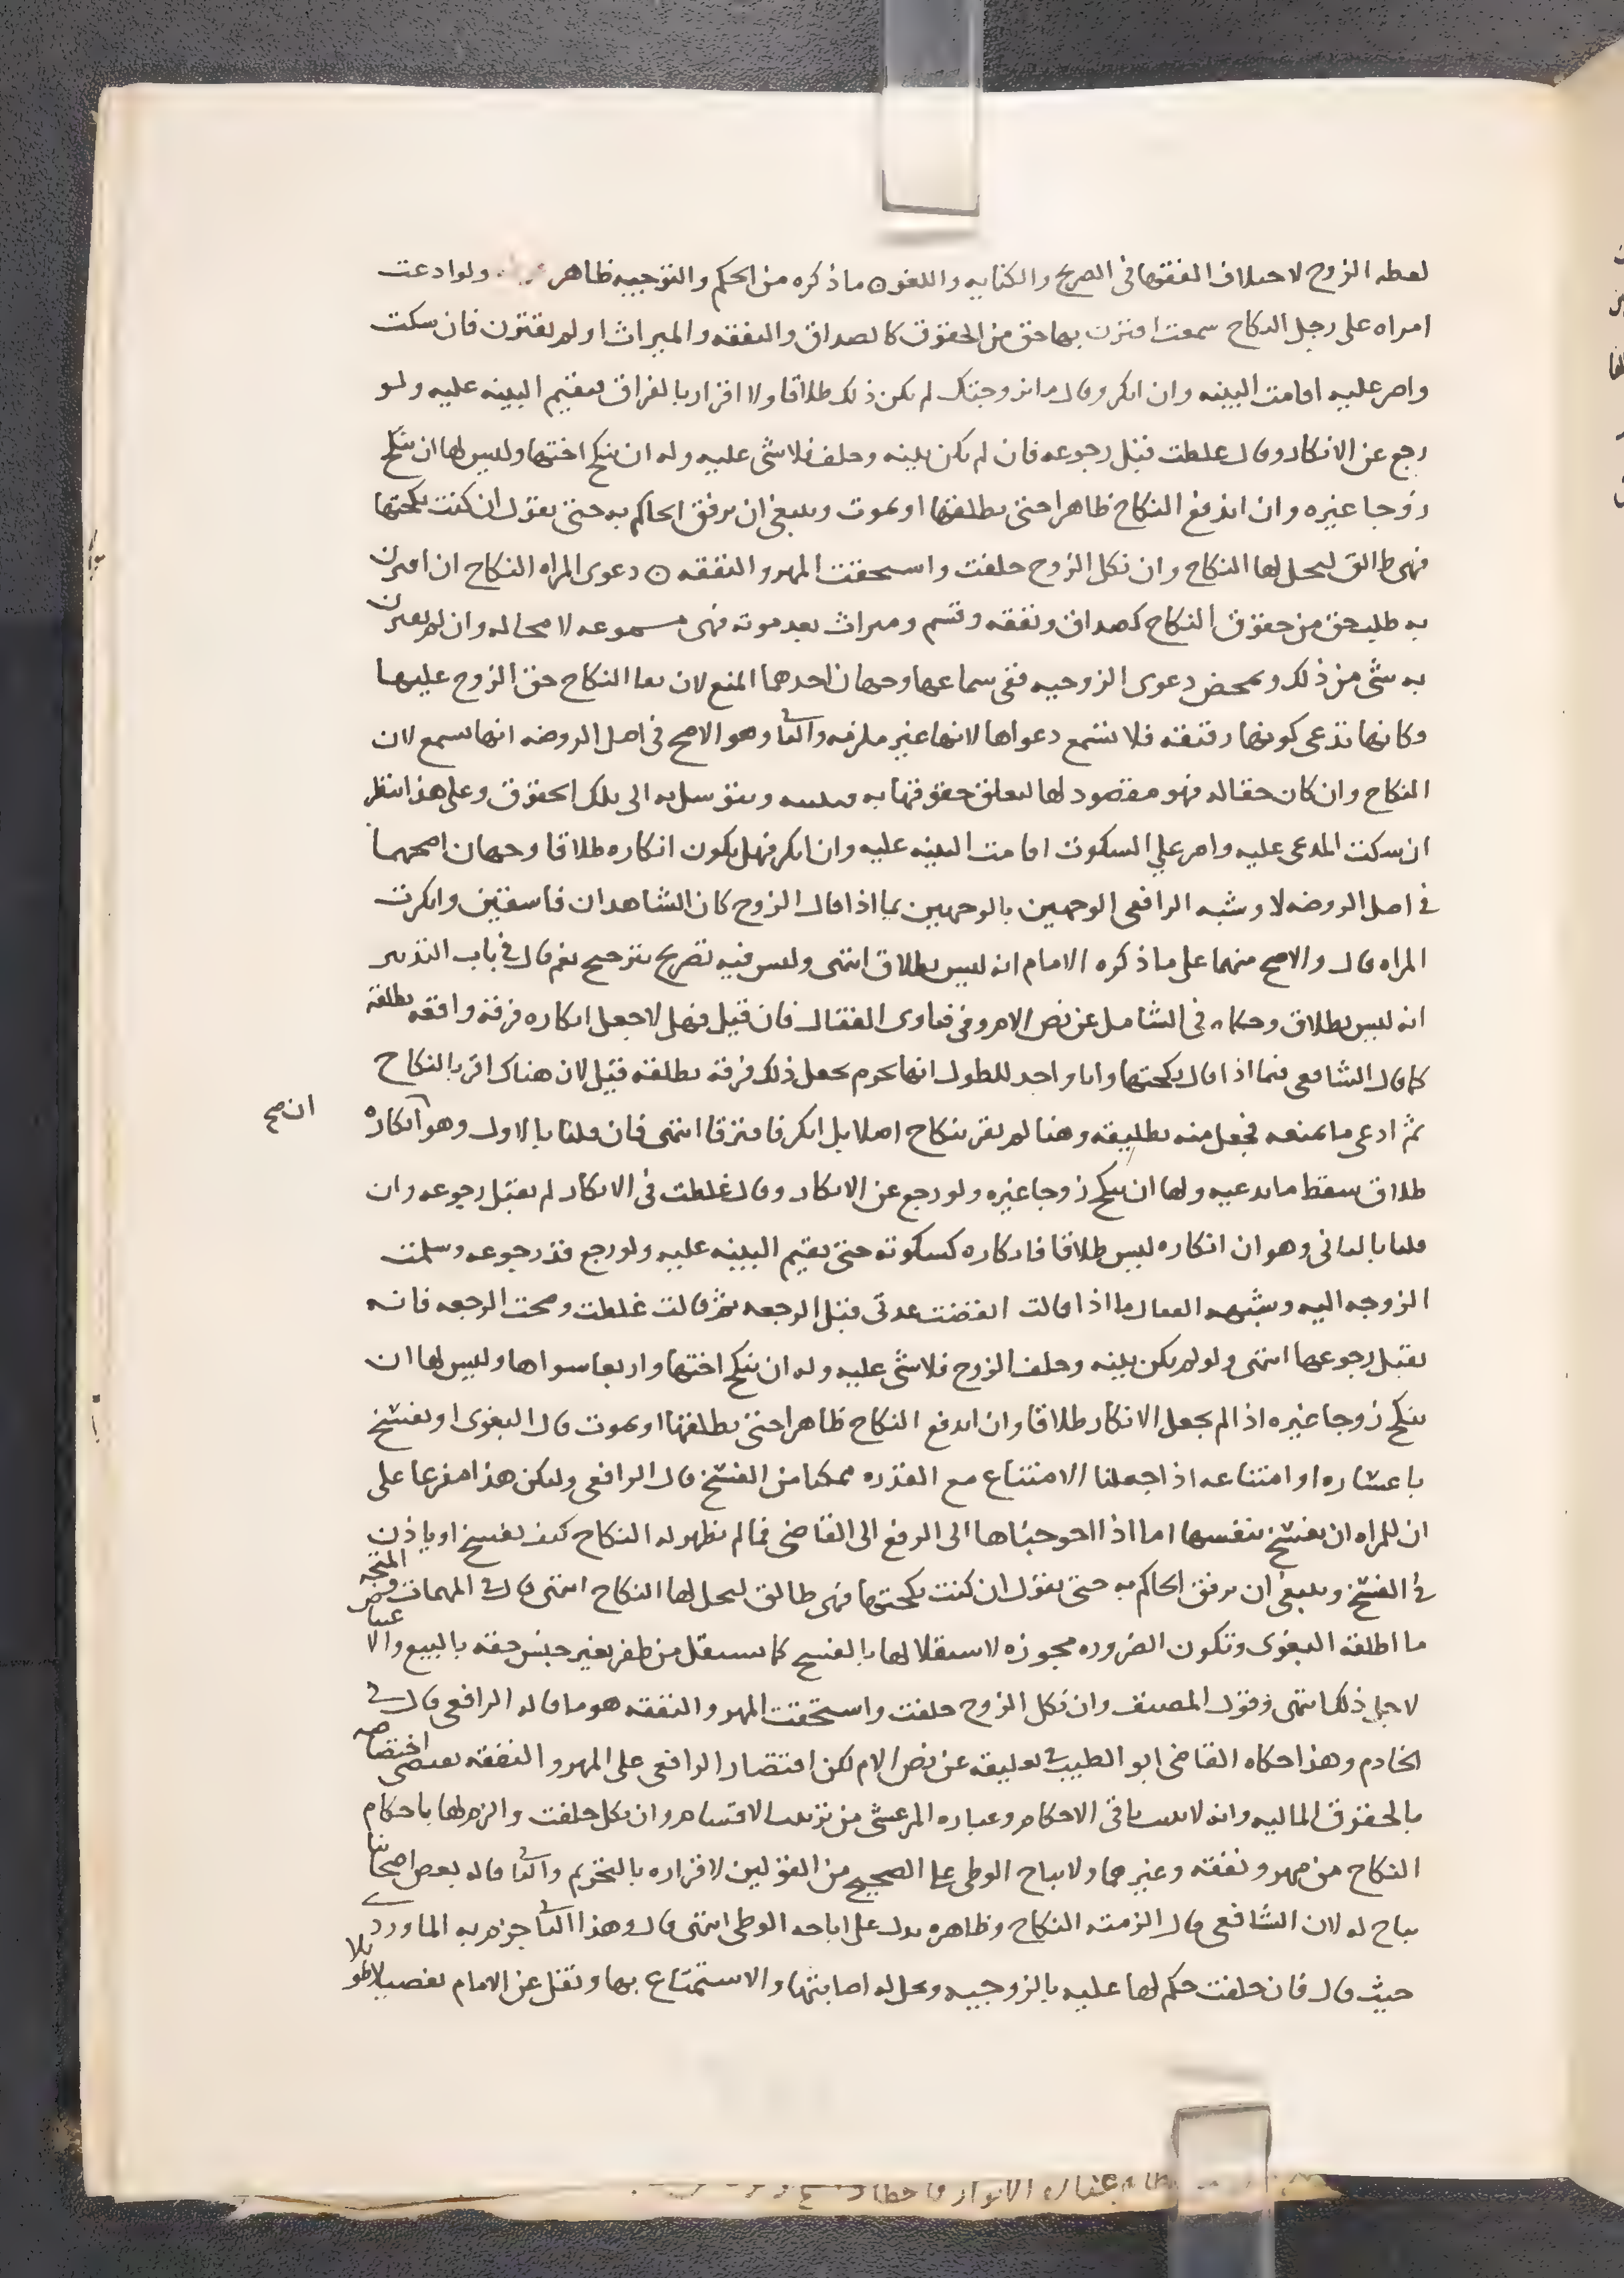 لفظه الزوج لاختلاف الفقها فى الصريح والكنايه واللغو ۞ ما ذكره من الحكم والتوجيه ظاهر ولو ادعت
امراه على رجل النكاح سمعت اقترن بها حق من الحقوق كالصداق والنفقه والميراث او لم يقترن فان سكت
واصر عليه اقامت البينه وان انكر وقال ما تزوجتك لم يكن ذلك طلاقا ولا اقرار بالفراق فيقيم البينه عليه ولو
رجع عن الانكار وقال غلطت قبل رجوعه فان لم يكن بينه وحلف فلا شى عليه وله ان ينكح اختها وليس لها ان تنكح
زوجا غيره وان اندفع النكاح ظاهرا حتى يطلقها او يموت وينبغى ان يرفق الحاكم به حتى يقول ان كنت نكحتها
فهى طالق ليحل لها النكاح وان نكل الزوج حلفت واستحقت المهر والنفقه ۞ دعوى المراه النكاح ان اقترن
به طلب حق من حقوق النكاح كصداق ونفقه وقسم وميراث بعد موته فهى مسموعه لا محاله وان لم يقترن
به شى من ذلك وتمحض دعوى الزوجيه ففى سماعها وجهان احدهما المنع لان بقا النكاح حق الزوج عليها
وكانها تدعى كونها رقيقه فلا تسمع دعواها لانها غير ملزمه والثانى وهو الاصح فى اصل الروضه انها تسمع لان
النكاح وان كان حقا له فهو مقصود لها لتعلق حقوقها به فتثبته وتتوسل به الى تلك الحقوق وعلى هذا ينظر
ان سكت المدعى عليه واصر على السكوت اقامت البينه عليه وان انكر فهل يكون انكاره طلاقا وجهان اصحهما
فى اصل الروضه لا وشبه الرافعى الوجهين بالوجهين بما اذا قال الزوج كان الشاهدان فاسقين وانكرت
المراه قال والاصح منهما على ما ذكره الامام انه ليس بطلاق انتهى وليس فيه تصريح بترجيح نعم قال فى باب التدبير
انه ليس بطلاق وحكاه فى الشامل عن نص الام وفى فتاوى القفال فان قيل فهل لا جعل انكاره فرقة واقعه بطلقه
كما قال الشافعى فيما اذا قال نكحتها وانا واجد للطول انها تحرم بجعل ذلك فرقة بطلقه قيل لان هناك اقر بالنكاح
ثم ادعى ما يمنعه فجعل منه تطليقه وهنا لم يقر بنكاح اصلا بل انكر فافترقا انتهى فان قلنا بالاول وهو ان انكاره
ان صح
طلاق سقط ما تدعيه ولها ان تنكح زوجا غيره ولو رجع عن الانكار وقال غلطت فى الانكار لم يقبل رجوعه وان
قلنا بالثانى وهو ان انكاره ليس طلاقا فانكاره كسكوته حتى تقيم البينه عليه ولو رجع قبل رجوعه وسلمت
الزوجه اليه وشبهه القفال بما اذا قالت انقضت عدتى قبل الرجعه ثم قالت غلطت وصحت الرجعه فانه
يقبل رجوعها انتهى ولو لم يكن بينه وحلف الزوج فلا شى عليه وله ان ينكح اختها واربعا سواها وليس لها ان
تنكح زوجا غيره اذا لم يجعل الانكار طلاقا وان اندفع النكاح ظاهرا حتى يطلقها او يموت قال البغوى او يفسخ
باعساره او امتناعه اذا جعلنا الامتناع مع القدره ممكنا من الفسخ قال الرافعى وليكن هذا مفرعا على
ان للمراه ان تفسخ بنفسها اما اذا احوجناها الى الرفع الى القاضى فما لم يظهر له النكاح كيف يفسخ او ياذن
فى الفسخ وينبغى ان يرفق الحاكم به حتى يقول ان كنت نكحتها فهى طالق ليحل لها النكاح انتهى قال فى المهمات المتجه
ما اطلقه البغوى وتكون الضروره مجوزه لاستقلالها بالفسخ كما يستقل من ظفر بغير جنس حقه بالبيع والا
لاجل ذلك انتهى وقول المصنف وان نكل الزوج حلفت واستحقت المهر والنفقه هو ما قاله الرافعى قال فى
الخادم وهذا حكاه القاضى ابو الطيب فى تعليقه عن نص الام لكن اقتصار الرافعى على المهر والنفقه يقتضى اختصاصه
بالحقوق الماليه وانه لا يثبت باقى الاحكام وعباره المرعشى من ترتيب الاقسام وان نكل حلفت والزم لها باحكام
النكاح من مهر ونفقه وغيرهما ولا يباح الوطى على الصحيح من القولين لاقراره بالتحريم والثانى قاله بعض اصحابنا
يباح له لان الشافعى قال الزمته النكاح وظاهره يدل على اباحه الوطى انتهى قال وهذا الثانى جزم به الماوردى
حيث قال فان حلفت حكم لها عليه بالزوجيه وحل له اصابتها والاستمتاع بها ونقل عن الامام تفصيلا طويلا